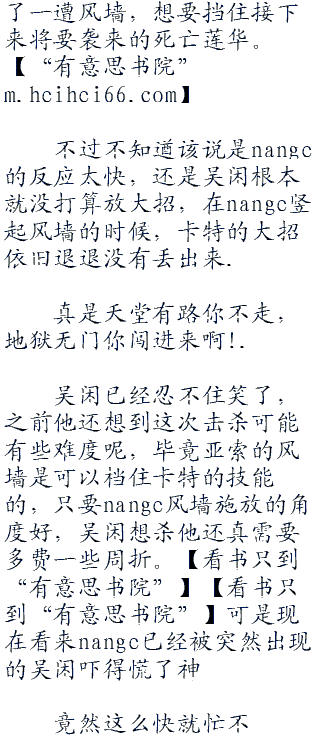 了一遭风墙，想要挡住接下
来将要袭来的死亡莲华。
【“有意思书院”
m.hcihci66.com】
不过不知道该说是nangc
的反应太快，还是吴闲根本
就没打算放大招，在nangc竖
起风墙的时候，卡特的大招
依旧退退没有丢出来.
真是天堂有路你不走，
地狱无门你闯进来啊!.
吴闲已经忍不住笑了，
之前他还想到这次击杀可能
有些难度呢，毕竟亚索的风
墙是可以档住卡特的技能
的，只要nangc风墙施放的角
度好，吴闲想杀他还真需要
多费一些周折。【看书只到
“有意思书院”】【看书只
到“有意思书院”】可是现
在看来nangc已经被突然出现
的吴闲吓得慌了神
竟然这么快就忙不